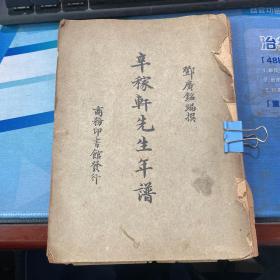 鄧廣銘編撰
辛稼軒先生年譜
商務印書館發行
冶
「48